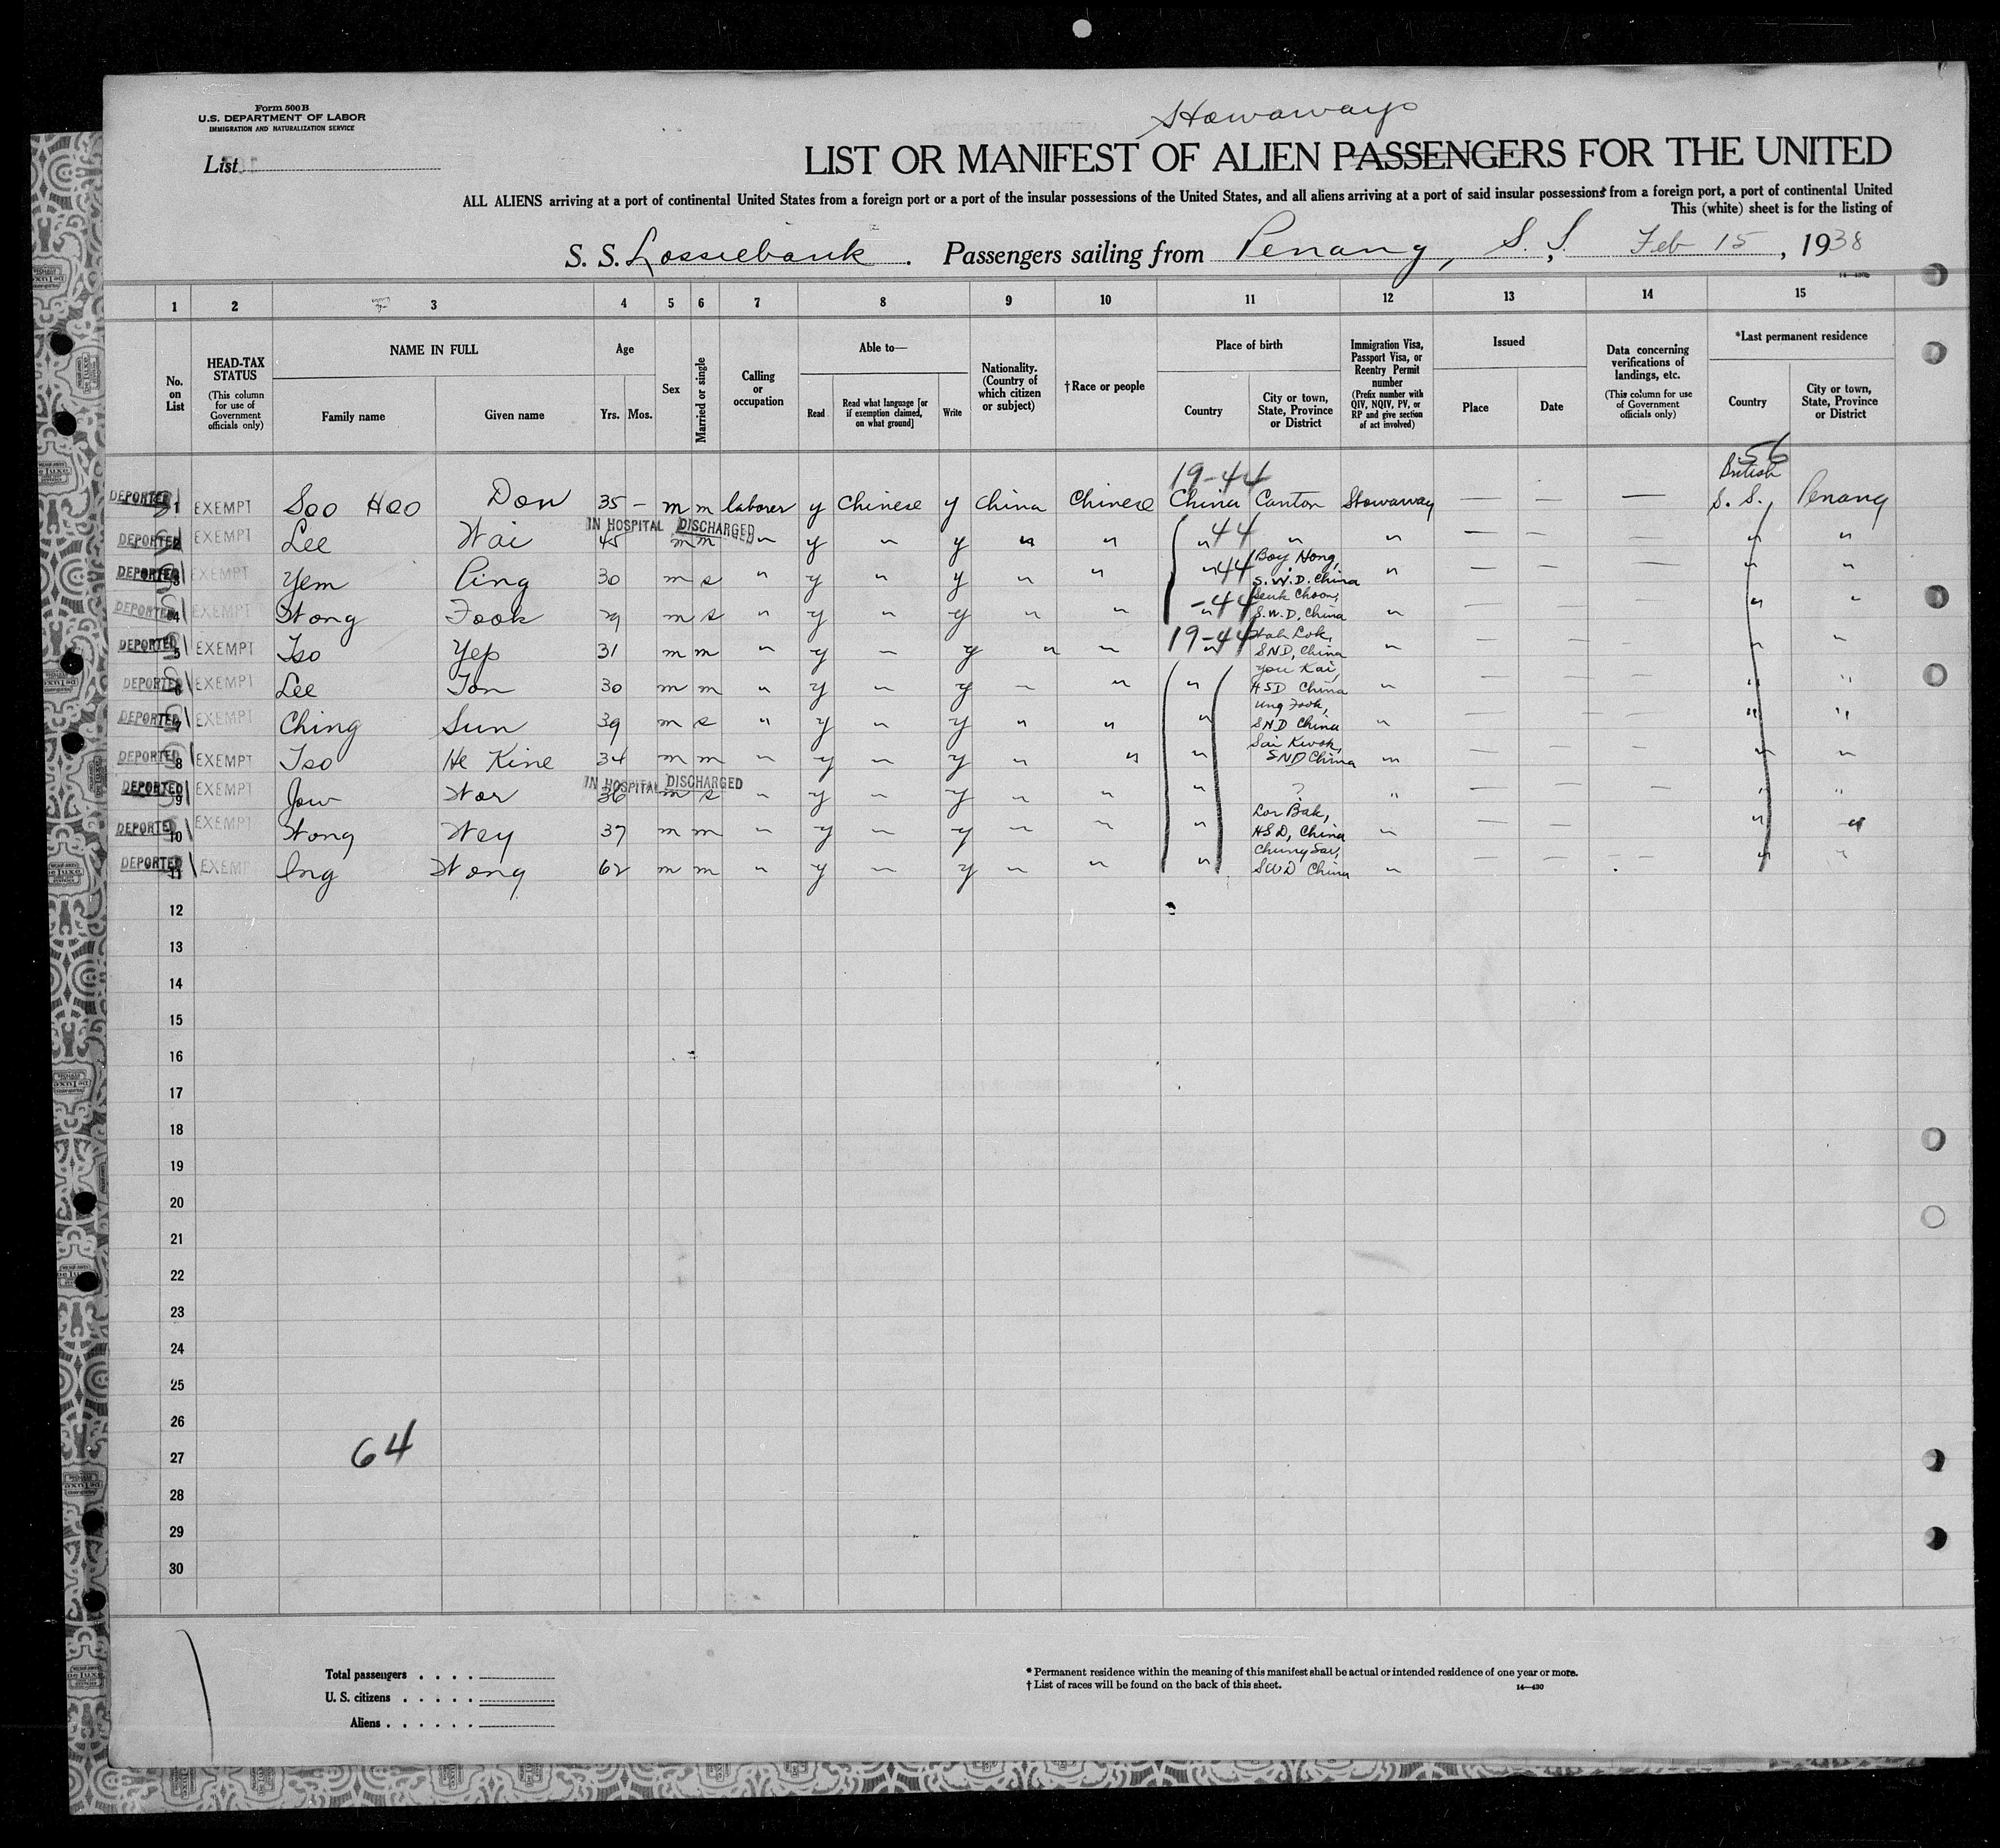 Form 500 B
U.S. DEPARTMENT OF LABOR
IMMIGRATION AND NATURALIZATION SERVICE
List
Stowaways
LIST OR MANIFEST OF ALIEN PASSENGERS FOR THE UNITED
ALL ALIENS arriving at a port of continental United States from a foreign port or a port of the insular possessions of the United States, and all aliens arriving at a port of said insular possessions from a foreign port, a port of continental United
This (white) sheet is for the listing of
S. S. Lossiebank . Passengers sailing from Penang, S. S., Feb 15, 1938
1 2 3 4 5 6 7 8 9 10 11 12 13 14 15
No. on List
HEAD-TAX STATUS (This column for use of Government officials only)
NAME IN FULL Family name Given name
Age Yrs. Mos.
Sex
Married or single
Calling or occupation
Able to— Read Read what language [or if exemption claimed, on what ground] Write
Nationality. (Country of which citizen or subject)
†Race or people
Place of birth Country City or town, State, Province or District
Immigration Visa, Passport Visa, or Reentry Permit number (Prefix number with QIV, NQIV, PV, or RP and give section of act involved)
Issued Place Date
Data concerning verifications of landings, etc. (This column for use of Government officials only)
*Last permanent residence Country City or town, State, Province or District
19-44 56
DEPORTED 1 EXEMPT Soo Hoo Don 35 - m m laborer y Chinese y China Chinese China Canton Stowaway — — — British S. S. Penang
IN HOSPITAL DISCHARGED
DEPORTED 2 EXEMPT Lee Wai 45 m m " y " y " " " 44 " " — — — " "
DEPORTED 3 EXEMPT Yem Ping 30 m s " y " y " " " 44 Boy Hong, S.W.D. China " — — — " "
DEPORTED 4 EXEMPT Wong Fook 29 m s " y " y " " " -44 Choon, S.W.D, China " — — — " "
DEPORTED 5 EXEMPT Tso Yep 31 m m " y " y " " 19-44 " Lok, SND, China " — — — " "
DEPORTED 6 EXEMPT Lee Ton 30 m m " y " y " " " You Kai, HSD China " — — — " "
DEPORTED 7 EXEMPT Ching Sun 39 m s " y " y " " " Ung Fook, SND China " — — — " "
DEPORTED 8 EXEMPT Tso He Kine 34 m m " y " y " " " Sai Kwok, SND China " — — — " "
IN HOSPITAL DISCHARGED
DEPORTED 9 EXEMPT Jow Wor 36 m s " y " y " " " ? " — — — " "
DEPORTED 10 EXEMPT Wong Wey 37 m m " y " y " " " Lor Bak, HSD, China " — — — " "
DEPORTED 11 EXEMPT Ing Wong 62 m m " y " y " " " Chung Sai, SWD China " — — — " "
12
13
14
15
16
17
18
19
20
21
22
23
24
25
26
64
27
28
29
30
Total passengers . . . .
U. S. citizens . . . . .
Aliens . . . . . .
* Permanent residence within the meaning of this manifest shall be actual or intended residence of one year or more.
† List of races will be found on the back of this sheet.
14—430